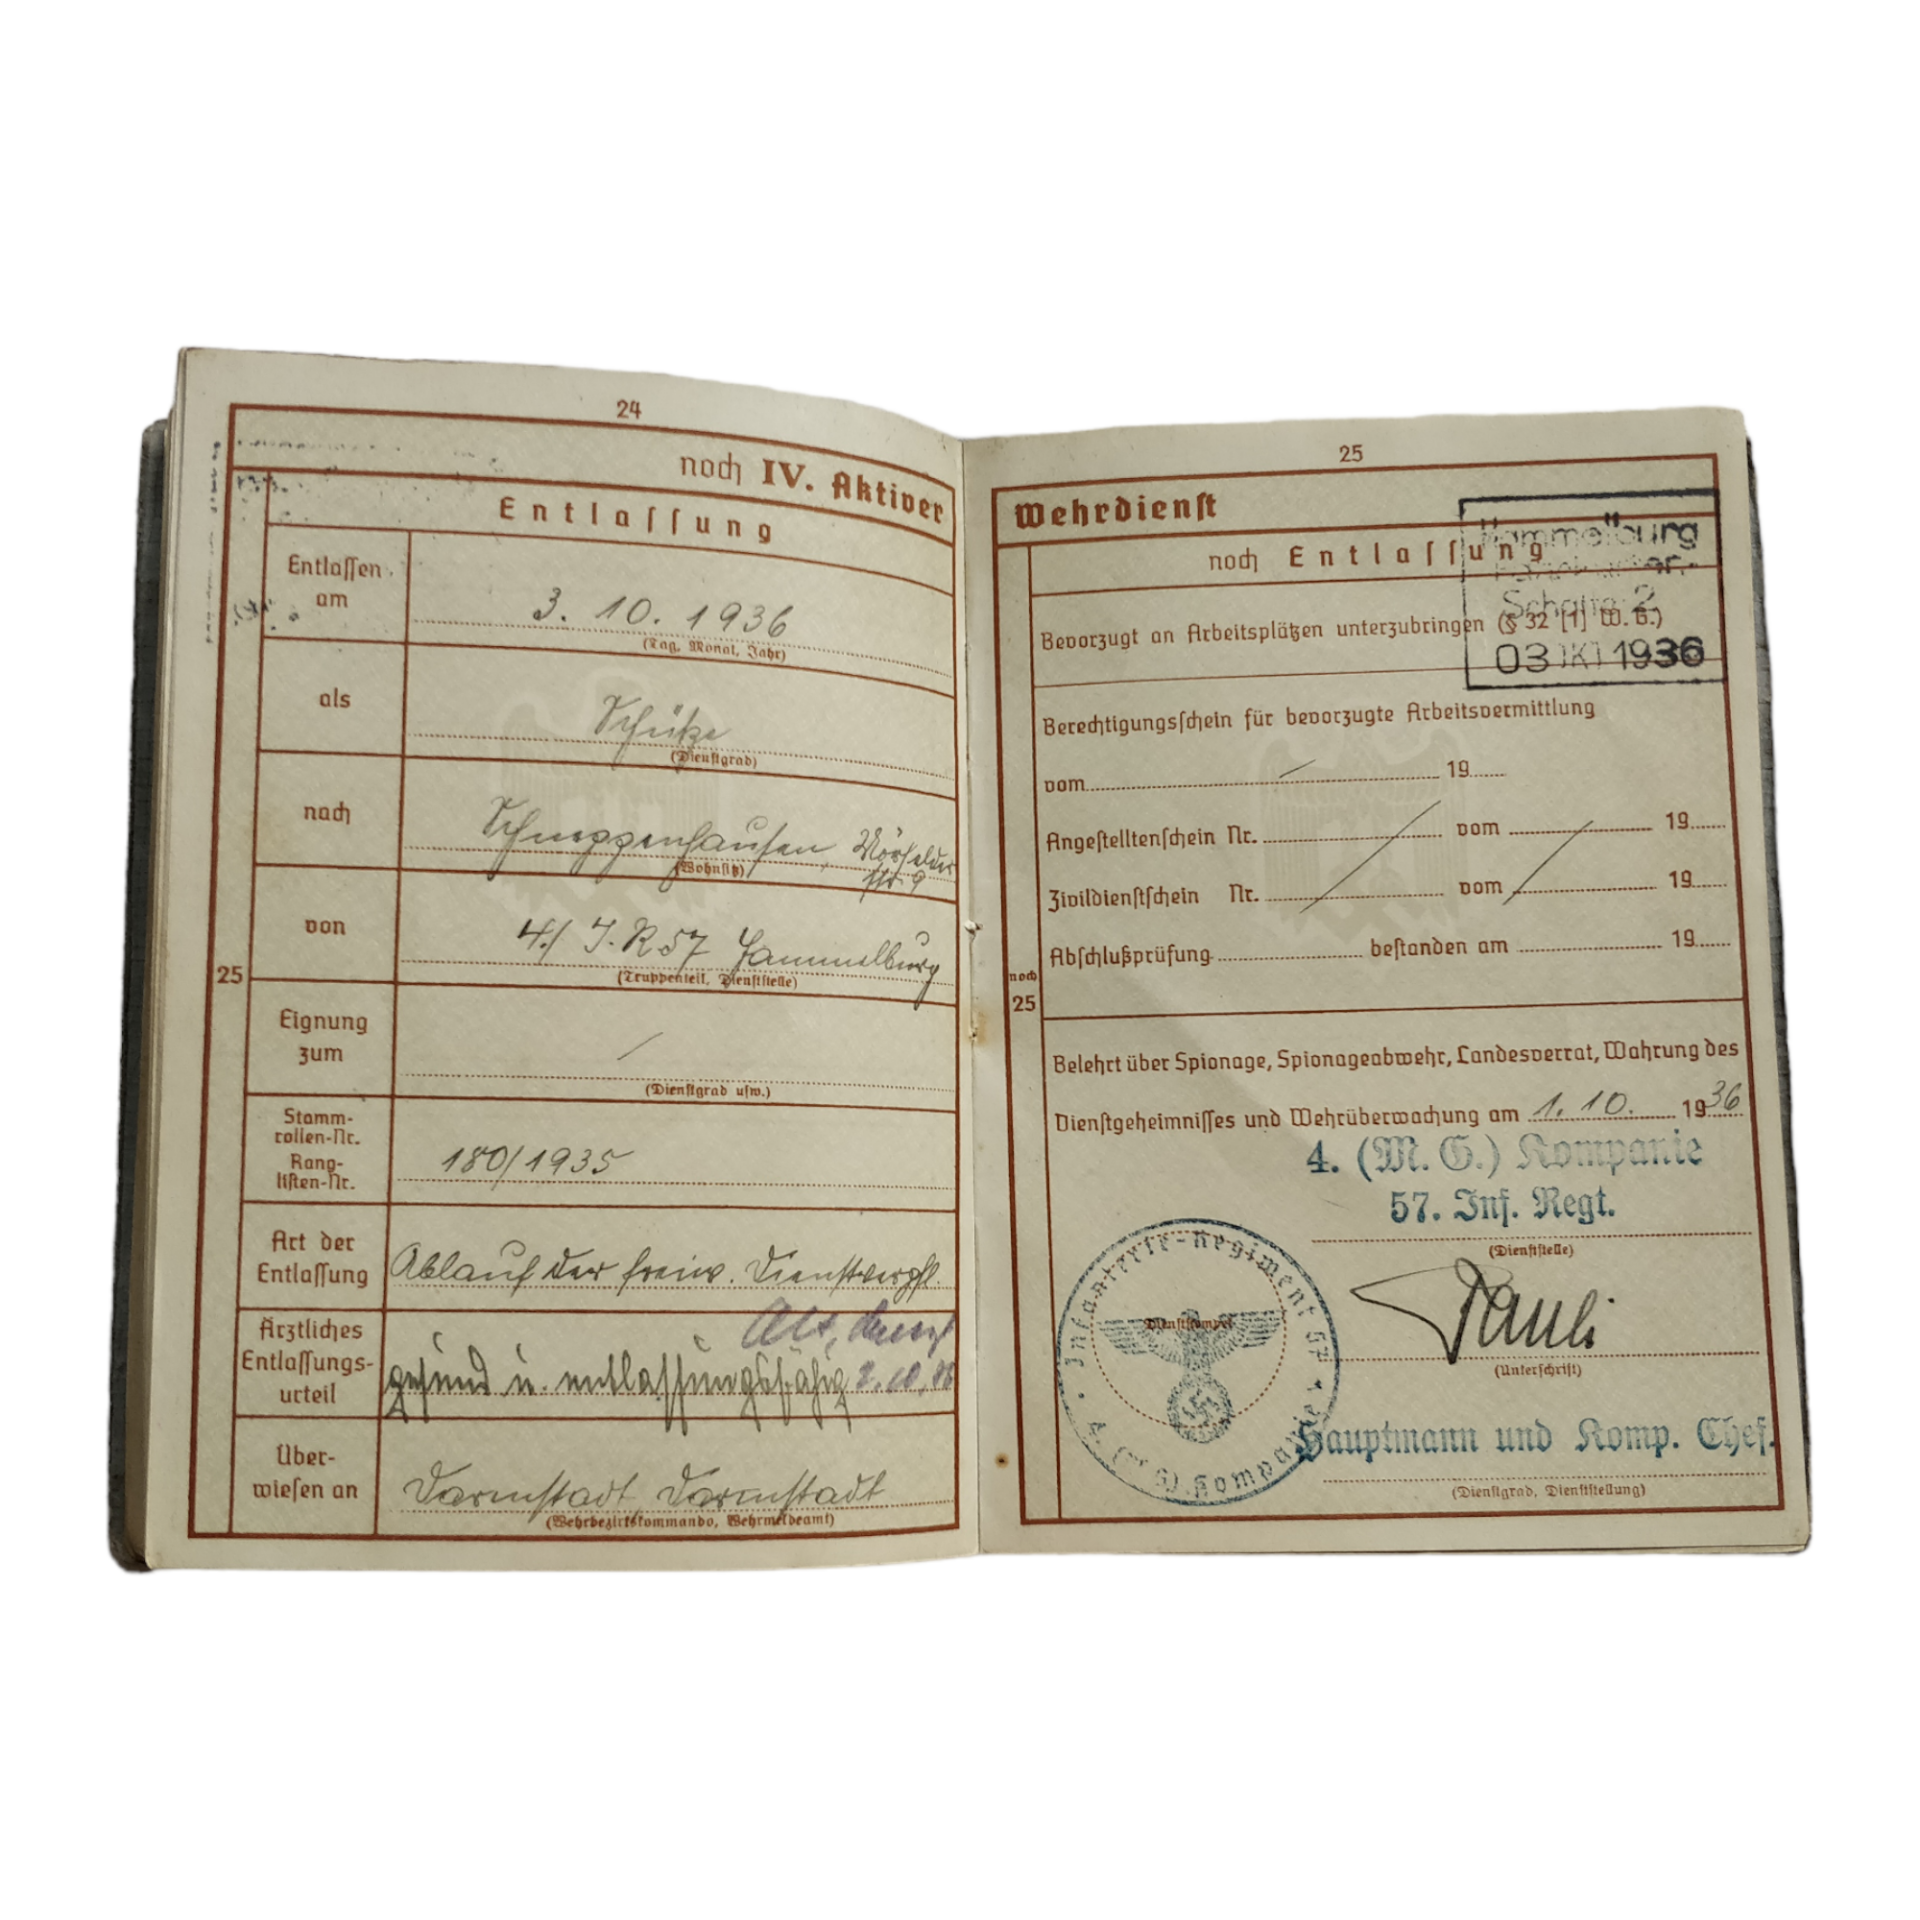 24
noch IV. Aktiver
Entlassung
Entlassen am
3. 10. 1936
(Tag, Monat, Jahr)
als
Schütze
(Dienstgrad)
nach
Schneppenhausen, Mörfelder
str. 9
(Wohnsitz)
von
4./ I.R. 57 Hammelburg
(Truppenteil, Dienststelle)
25
Eignung zum
(Dienstgrad usw.)
Stamm-
rollen-Nr.
Rang-
listen-Nr.
180/1935
Art der
Entlassung
Ablauf der freiw. Dienstverpfl.
Ärztliches
Entlassungs-
urteil
gesund u. entlassungsfähig 2.10.36
Über-
wiesen an
Darmstadt, Darmstadt
(Wehrbezirkskommando, Wehrmeldeamt)
25
Wehrdienst
noch Entlassung
Hammelburg
Schalter 2
03 OKT 1936
Bevorzugt an Arbeitsplätzen unterzubringen (§ 32 [1] W. G.)
Berechtigungsschein für bevorzugte Arbeitsvermittlung
vom 19
Angestelltenschein Nr. vom 19
Zivildienstschein Nr. vom 19
Abschlußprüfung bestanden am 19
noch
25
Belehrt über Spionage, Spionageabwehr, Landesverrat, Wahrung des
Dienstgeheimnisses und Wehrüberwachung am 1. 10. 1936
4. (M. G.) Kompanie
57. Inf. Regt.
(Dienststelle)
Infanterie-Regiment 57
4. (M G) Kompanie
Dienststempel
Pauli
(Unterschrift)
Hauptmann und Komp. Chef.
(Dienstgrad, Dienststellung)